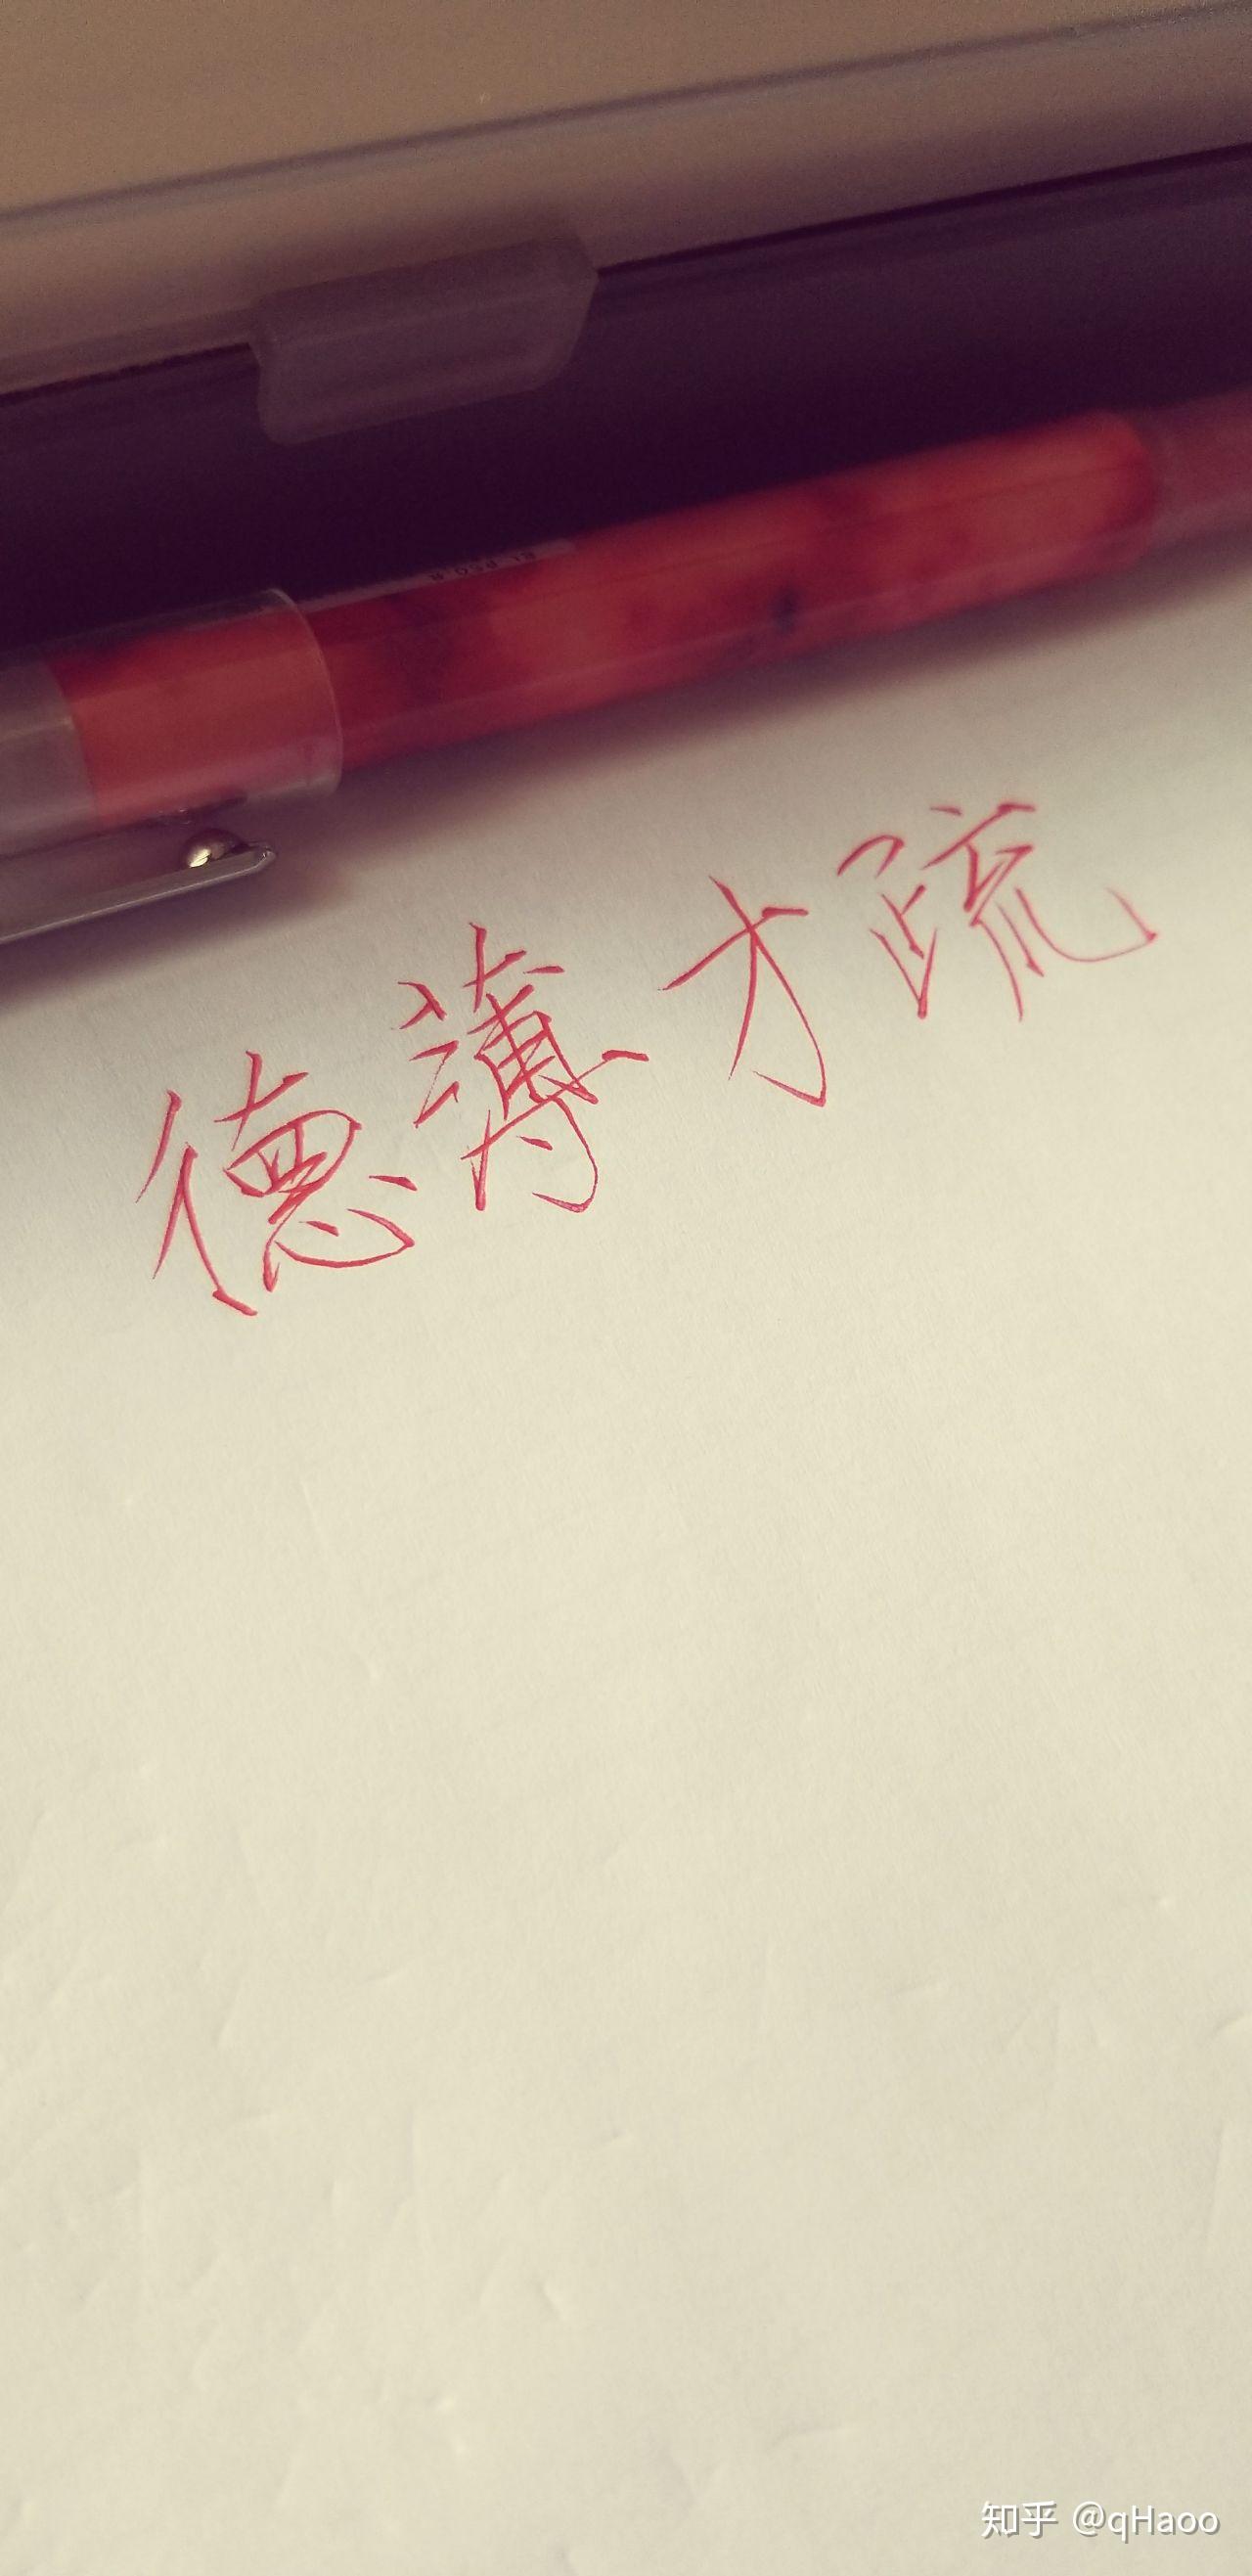 德薄才疏
知乎 @qHaoo